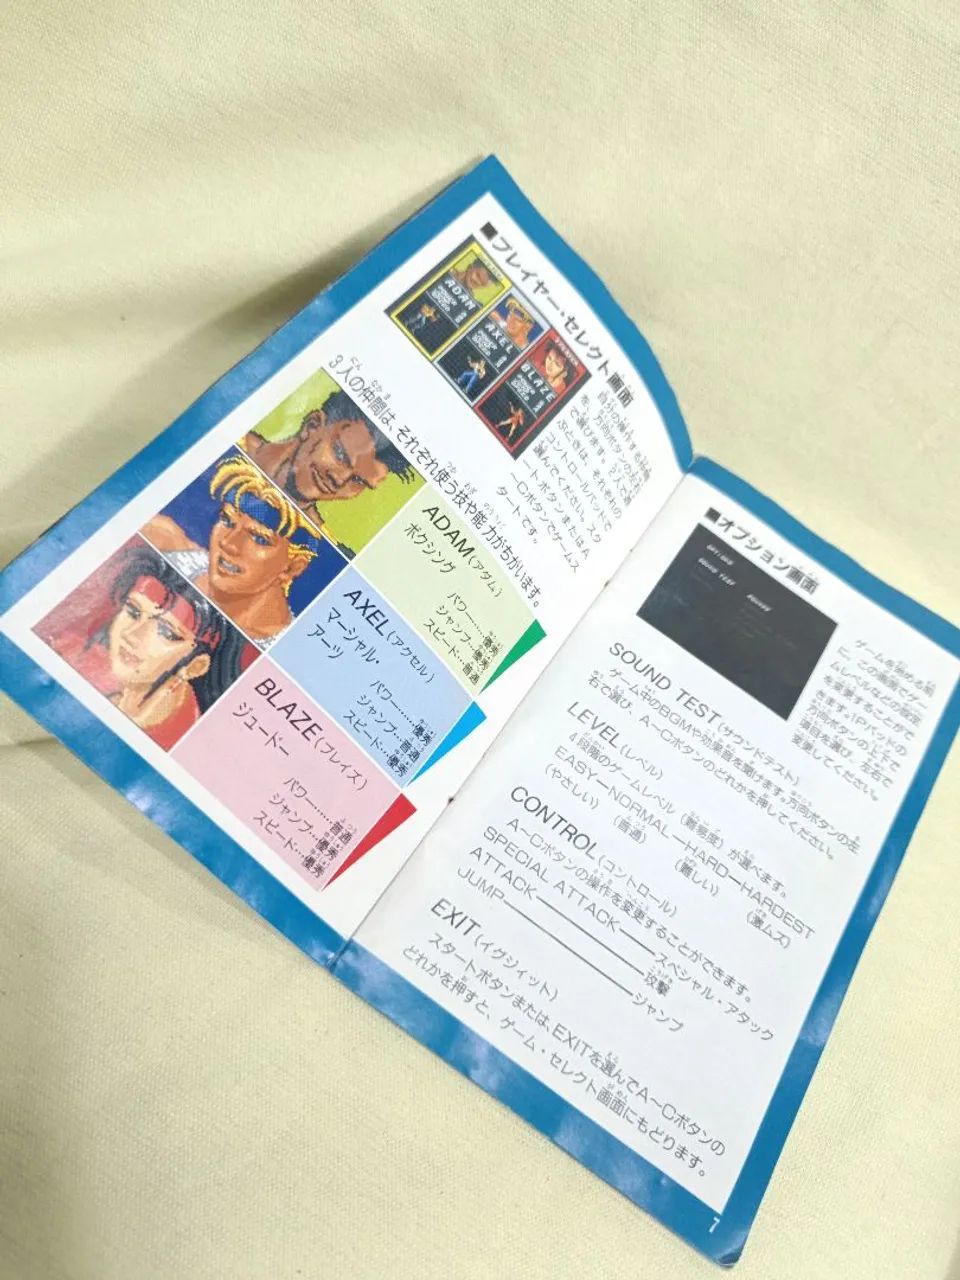 ■プレイヤー・セレクト画面
ADAM
AXEL
BLAZE
方向ボタンの左右
で選びます。2人で遊
ぶときは、それぞれの
コントロールパッドで
選んでください。スタ
ートボタンまたはA
〜Cボタンでゲームス
タートです。
3人の仲間は、それぞれ使う技や能力がちがいます。
ADAM(アダム)
ボクシング
パワー……優秀
ジャンプ…優秀
スピード…普通
AXEL(アクセル)
マーシャル・
アーツ
パワー……優秀
ジャンプ…普通
スピード…優秀
BLAZE(ブレイズ)
ジュードー
パワー……普通
ジャンプ…優秀
スピード…優秀
■オプション画面
SOUND TEST
ゲームを始める前
に、この画面でゲー
ムレベルなどの設定
を変更することがで
きます。1Pパッドの
方向ボタンの上下で
項目を選び、左右で
変更してください。
SOUND TEST(サウンドテスト)
ゲーム中のBGMや効果音を聞けます。方向ボタンの左
右で選び、A〜Cボタンのどれかを押してください。
LEVEL(レベル)
4段階のゲームレベル(難易度)が選べます。
EASY—NORMAL—HARD—HARDEST
(やさしい) (普通) (難しい) (激ムズ)
CONTROL(コントロール)
A〜Cボタンの操作を変更することができます。
SPECIAL ATTACK——スペシャル・アタック
ATTACK————攻撃
JUMP————ジャンプ
EXIT(イグジィット)
スタートボタンまたは、EXITを選んでA〜Cボタンの
どれかを押すと、ゲーム・セレクト画面にもどります。
7